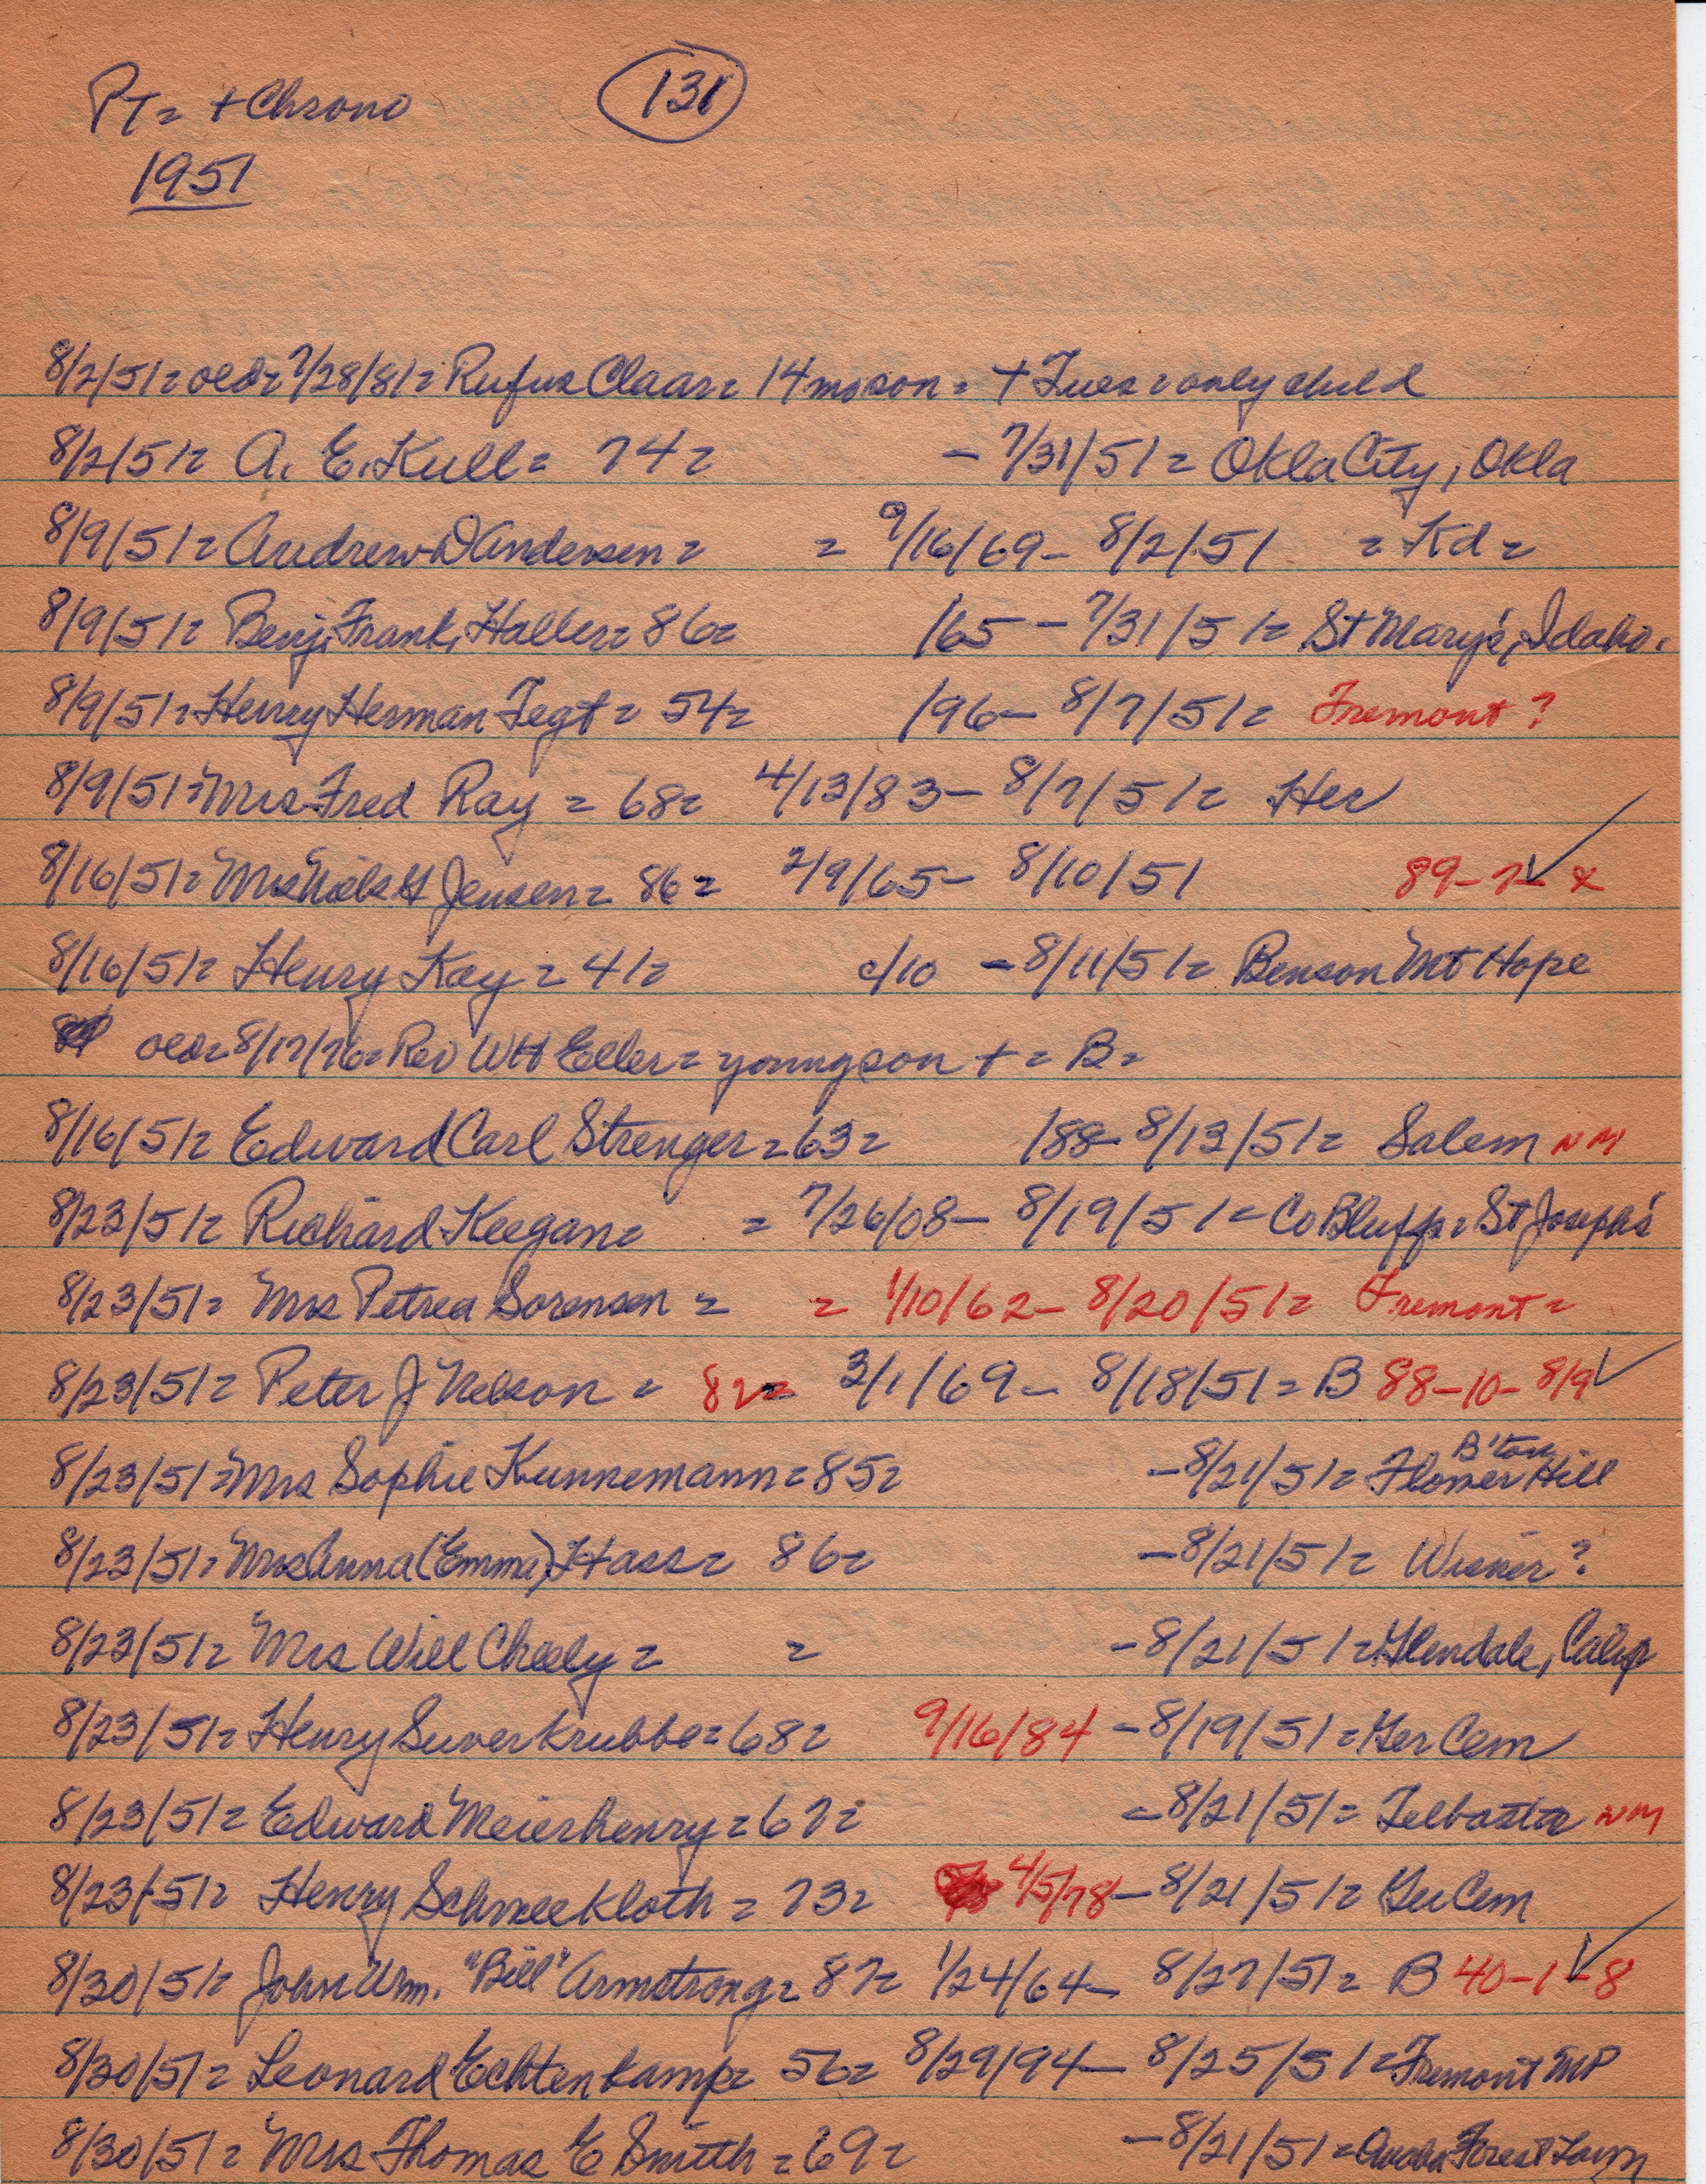 PT= +Chrono 131
1951
8/2/51= old= 7/28/81= Rufus Claar= 14 mo son= + Tues= only child
8/2/51= A. E. Kull= 74= - 7/31/51= Okla City, Okla
8/9/51= Andrew D Andersen= = 9/16/69- 8/2/51 = Kd=
8/9/51= Benj. Frank. Haller= 86= /65 - 7/31/51= St Mary's, Idaho.
8/9/51= Henry Herman Tegt= 54= /96- 8/7/51= Fremont ?
8/9/51= Mrs Fred Ray = 68= 4/13/83- 8/7/51= Her
8/16/51= Mrs Niels H Jensen= 86= 2/9/65- 8/10/51 89-7- x
8/16/51= Henry Kay= 41= c/10 - 8/11/51= Benson Mt Hope
old= 8/17/76= Rev WH Eller= young son + = B=
8/16/51= Edward Carl Strenger= 63= /88- 8/13/51= Salem NM
8/23/51= Richard Keegan= = 7/26/08- 8/19/51= Co Bluffs= St Joseph's
8/23/51= Mrs Petrea Sorensen = = 1/10/62- 8/20/51= Fremont=
8/23/51= Peter J Nelson = 82= 3/1/69- 8/18/51= B 88-10- 8/9
8/23/51= Mrs Sophie Kunnemann= 85= - 8/21/51= B'ton Flower Hill
8/23/51= Mrs Anna (Emma) Hass= 86= - 8/21/51= Wisner ?
8/23/51= Mrs Will Cheely = = - 8/21/51= Glendale, Calif
8/23/51= Henry Suverkrubbe= 68= 9/16/84 - 8/19/51= Ger Cem
8/23/51= Edward Meierhenry= 67= - 8/21/51= Telbasta NM
8/23/51= Henry Schmeekloth = 73= 4/5/78 - 8/21/51= Ger Cem
8/30/51= John Wm. "Bill" Armstrong= 87= 1/24/64- 8/27/51= B 40-1-8
8/30/51= Leonard Echtenkamp= 56= 8/29/94- 8/25/51= Fremont MP
8/30/51= Mrs Thomas E Smith = 69= - 8/21/51= Omaha Forest Lawn